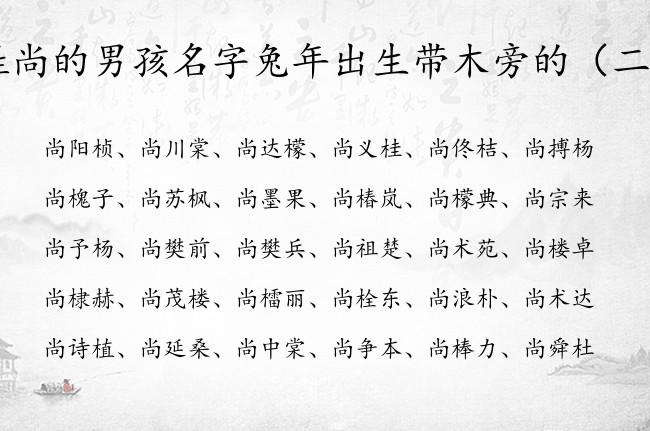 姓尚的男孩名字兔年出生带木旁的（二
尚阳桢、尚川棠、尚达檬、尚义桂、尚佟桔、尚搏杨
尚槐子、尚苏枫、尚墨果、尚椿岚、尚檬典、尚宗来
尚予杨、尚樊前、尚樊兵、尚祖楚、尚术苑、尚楼卓
尚棣赫、尚茂楼、尚檑丽、尚栓东、尚浪朴、尚术达
尚诗植、尚延桑、尚中棠、尚争本、尚棒力、尚舜杜